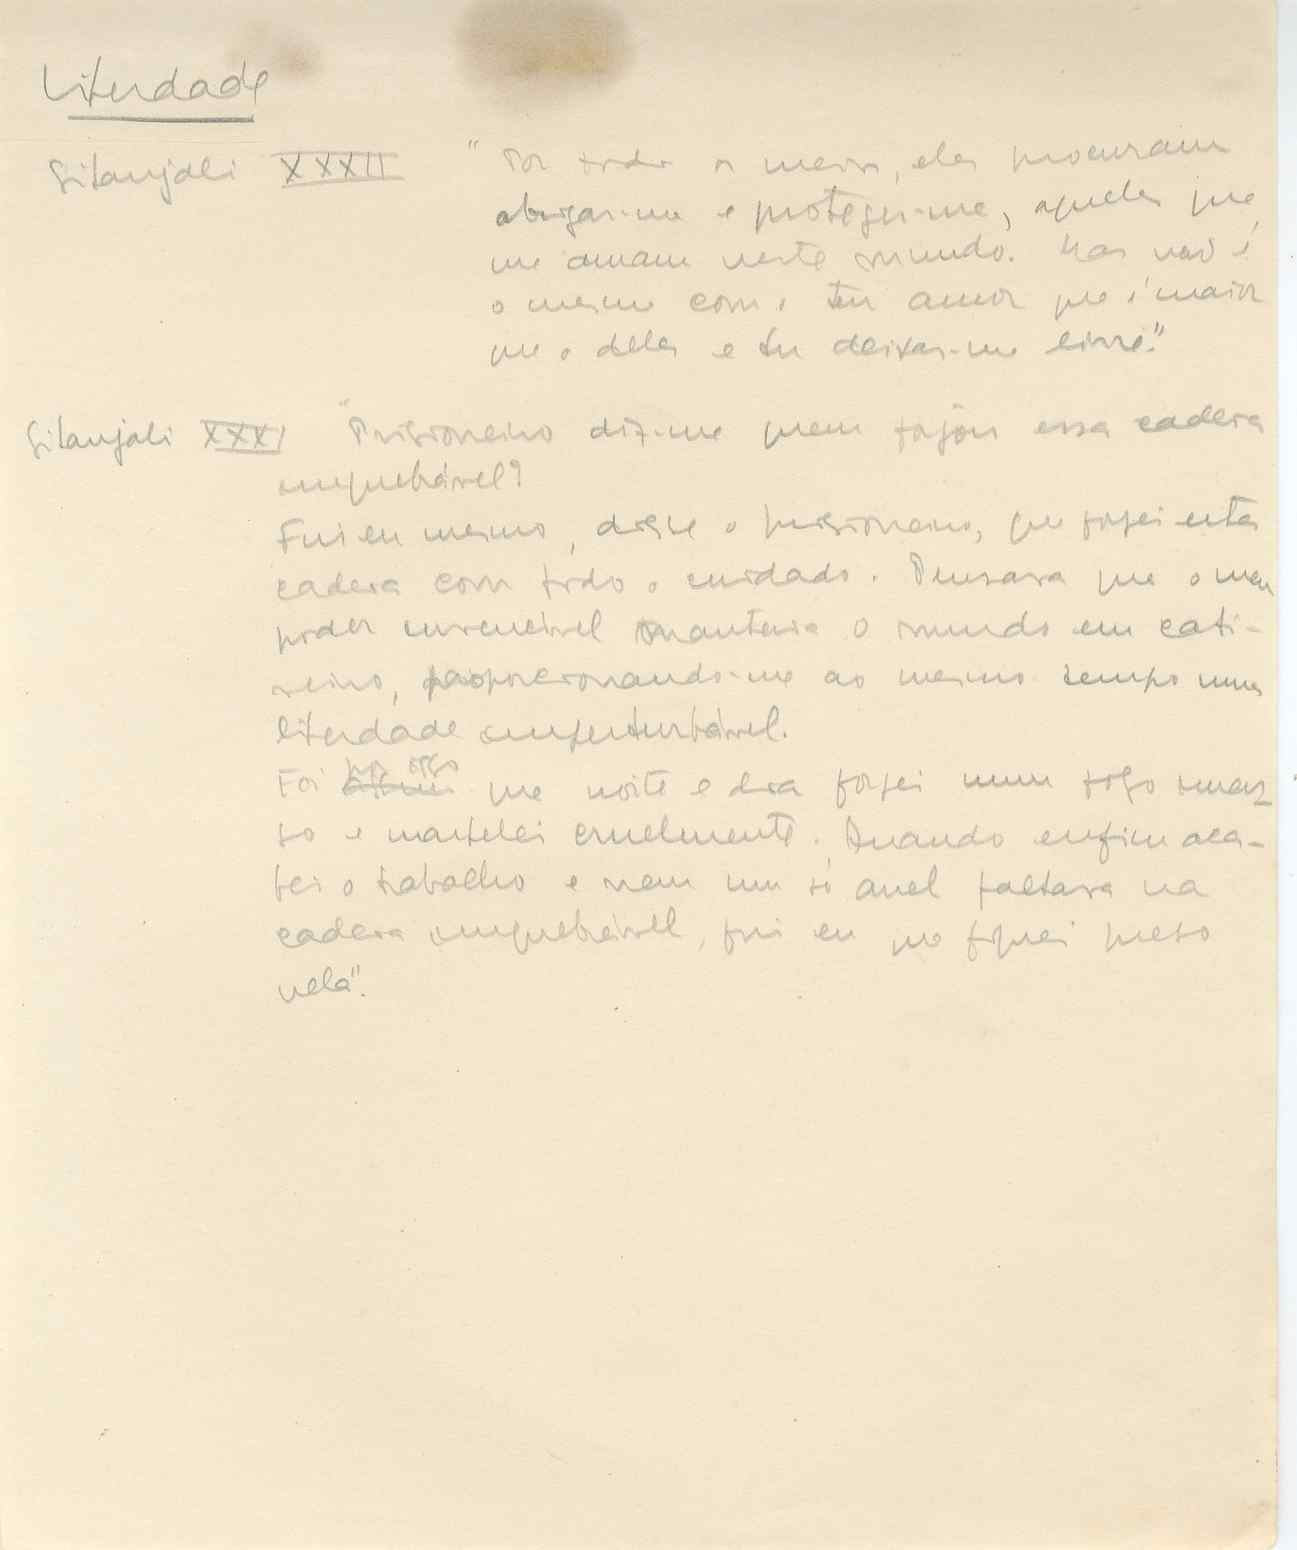 Liberdade
Gitanjali XXXII "Por todos os meios, eles procuram
abrigar-me e proteger-me, aqueles que
me amam neste mundo. Mas não é
o mesmo com o teu amor que é maior
que o deles e tu deixas-me livre."
Gitanjali XXXI "Prisioneiro diz-me quem forjou essa cadeia
inquebrável?
Fui eu mesmo, disse o prisioneiro, que forjei esta
cadeia com todo o cuidado. Pensava que o meu
poder invencível manteria o mundo em cati-
veiro, proporcionando-me ao mesmo tempo uma
liberdade imperturbável.
Foi por isso que noite e dia forjei num fogo imen
so e martelei cruelmente. Quando enfim aca-
bei o trabalho e nem um só anel faltava na
cadeia inquebrável, fui eu que fiquei preso
nela".